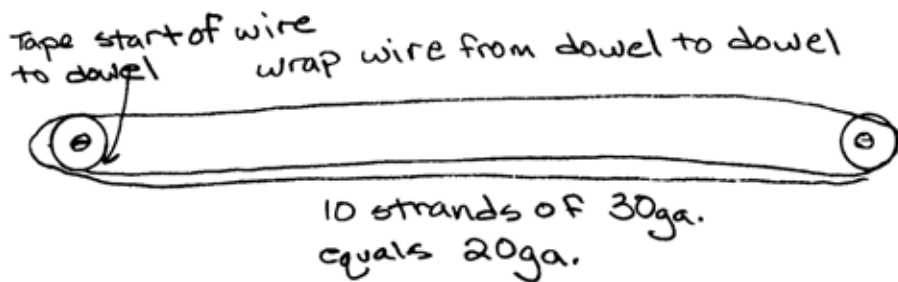 Tape start of wire
to dowel
wrap wire from dowel to dowel
10 strands of 30ga.
equals 20ga.